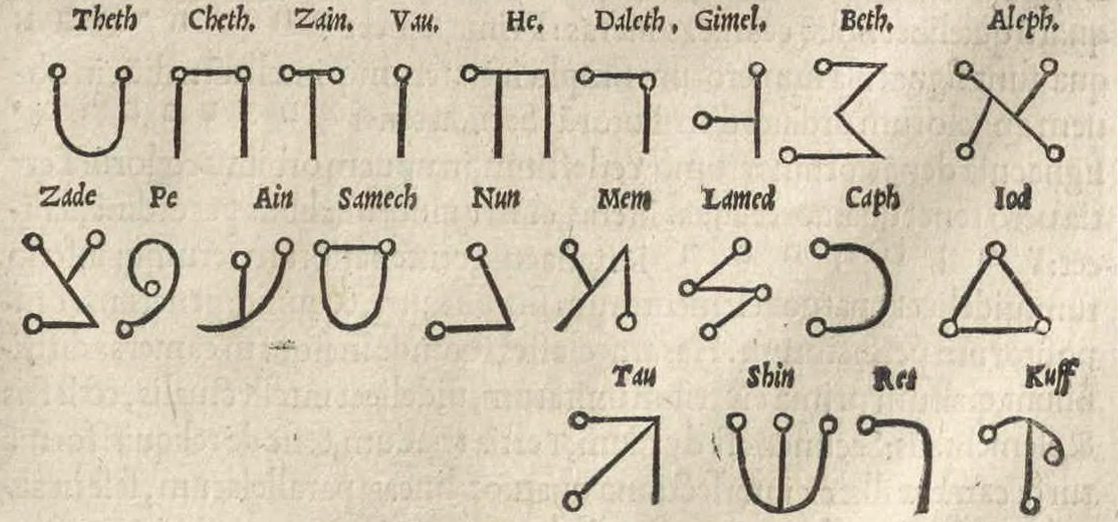 Theth Cheth. Zain. Vau. He. Daleth, Gimel. Beth. Aleph.
Zade Pe Ain Samech Nun Mem Lamed Caph Iod
Tau Shin Res Kuff